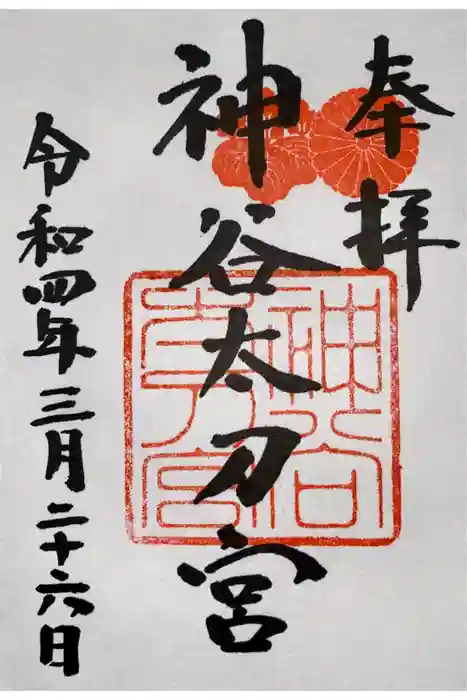 奉拝
神谷太刀宮
令和四年三月二十六日
神谷
太刀宮